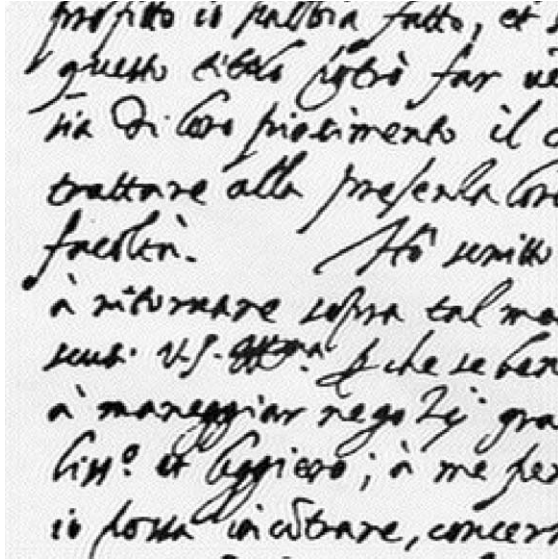 profitto io habbia fatto, et
questo titolo potrò far
sia di loro piacimento il
trattare alla presenza loro
facoltà. Hò scritto
à ritornare sopra tal
scusi V.S. Ill.ma p che se ben
à maneggiar negozij gra
liss.º et leggiero; à me per
io possa incõtrare, concer